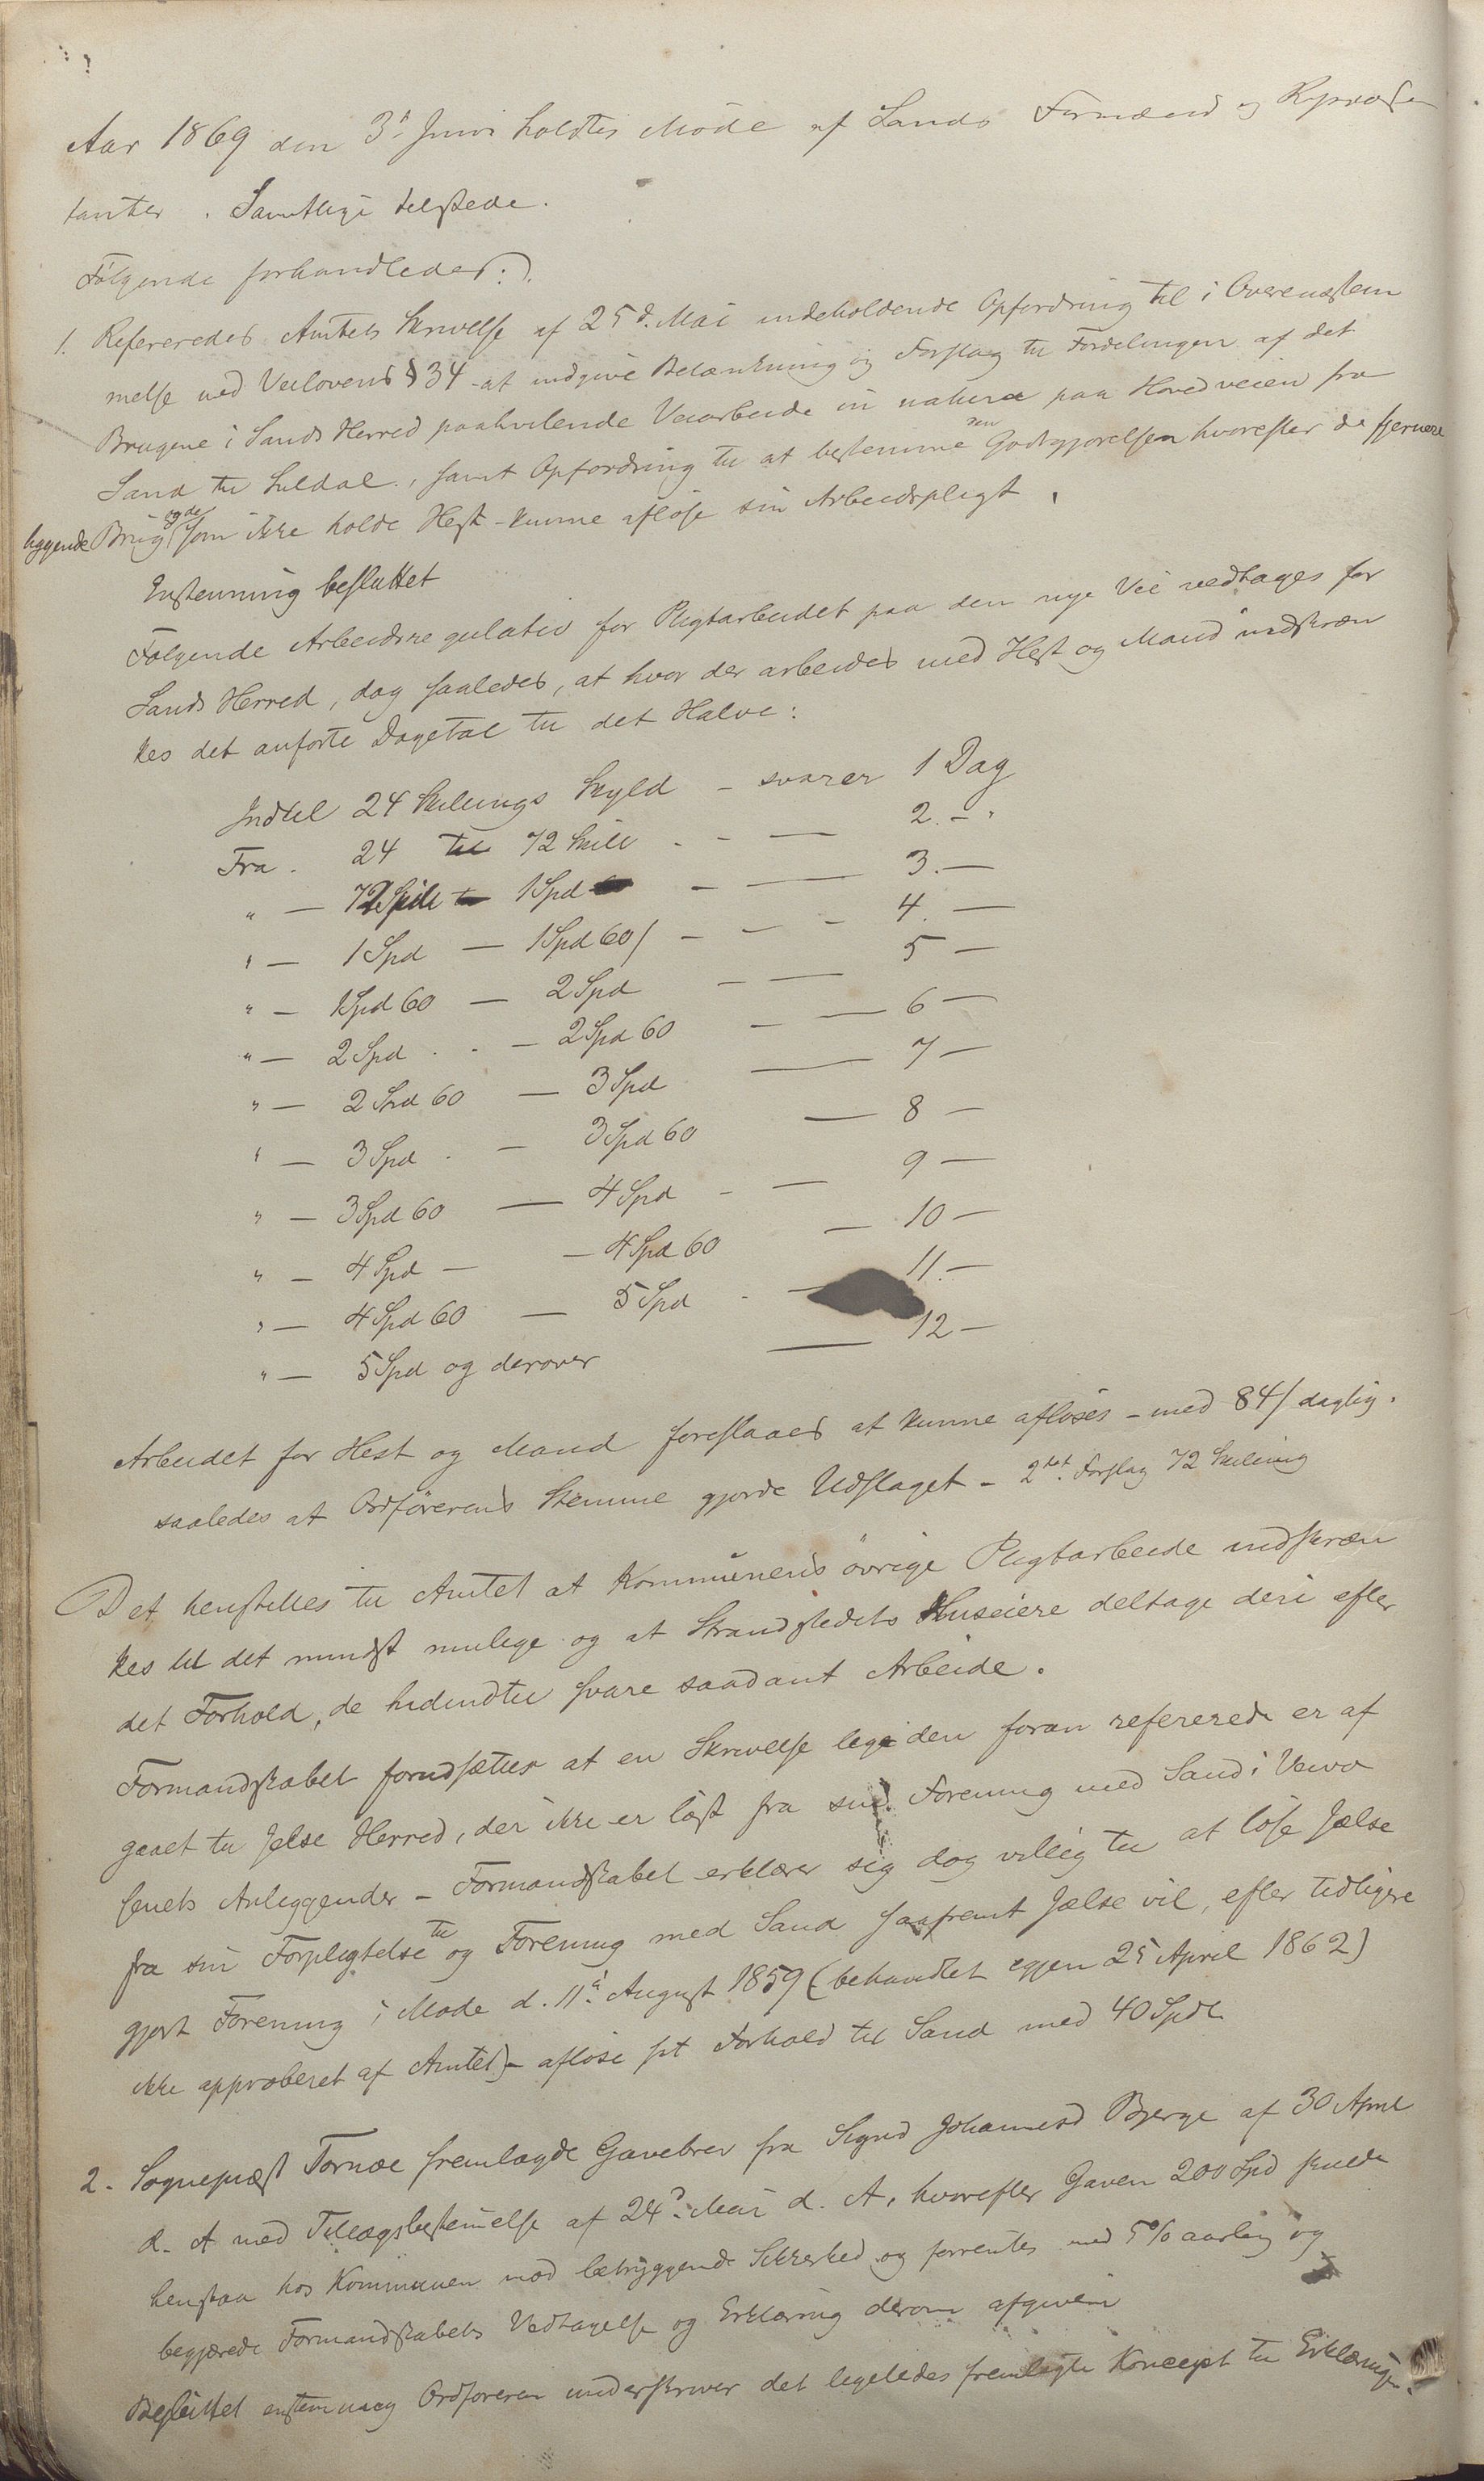 Aar 1869 den 3d Juni holdtes Møde af Sands Formænd og Repræsen
tanter. Samtlige tilstede.
Følgende forhandledes:
1. Refereredes Amtets Skrivelse af 25d. Mai indeholdende Opfordring til i Overensstem
melse med Veilovens § 34 at indgive Betænkning og Forslag til Fordelingen af det
Brugene i Sands Herred paahvilende Veiarbeide in natura paa Hovedveien fra
Sand til Suldal, samt Opfordring til at bestemme den Godtgjørelse hvorefter de fjernere
liggende Brug og de som ikke holde Hest kunne afløse sin Arbeidspligt.
Enstemmig besluttet
Følgende Arbeidsregulativ for Pligtarbeidet paa den nye Vei vedtages for
Sands Herred, dog saaledes, at hvor der arbeides med Hest og Mand indskræn
kes det anførte Dagetal til det Halve:
Indtil 24 Skillings Skyld - svarer 1 Dag
Fra . 24 til 72 Skill - - — 2. - "
" — 72 Skill — 1 Spd - — 3. —
" — 1 Spd — 1 Spd 60/ - - - 4. —
" — 1 Spd 60 — 2 Spd - — 5 —
" — 2 Spd . . — 2 Spd 60 - — 6 —
" — 2 Spd 60 — 3 Spd — 7 —
" — 3 Spd . — 3 Spd 60 — 8 —
" — 3 Spd 60 — 4 Spd - — 9 —
" — 4 Spd — — 4 Spd 60 — 10 —
" — 4 Spd 60 — 5 Spd . — 11. —
" — 5 Spd og derover — 12 —
Arbeidet for Hest og Mand foreslaaes at kunne afløses - med 84/ daglig.
saaledes at Ordførerens Stemme gjorde Udslaget - 2det Forslag 72 Skilling
Det henstilles til Amtet at Kommunens øvrige Pligtarbeide indskræn
kes til det mindst mulige og at Strandstedets Huseiere deltage deri efter
det Forhold, de hidindtil svare saadant Arbeide.
Formandskabet forudsætter at en Skrivelse lig den foran refererede er af
gaaet til Jelse Herred, der ikke er løst fra sin Forening med Sand i Veivæ
senets Anliggender - Formandskabet erklærer sig dog villig til at løse Jælse
fra sin Forpligtelse til og Forening med Sand saafremt Jælse vil, efter tidligere
gjort Forening i Møde d. 11te August 1859 (behandlet igjen 25 April 1862)
ikke approberet af Amtet) - afløse sit Forhold til Sand med 40 Spdl.
2. Sognepræst Tornøe fremlagde Gavebrev fra Sigrid Johannesd Bjerge af 30 April
d. A med Tillægsbestemmelse af 24d Mai d. A. hvorefter Gaven 200 Spd skulde
henstaa hos Kommunen mod betryggende Sikkerhed og forrentes med 5% aarlig og
begjærede Formandskabets Vedtagelse og Erklæring derom afgiven
Besluttet enstemmig Ordføreren underskriver det ligeledes fremlagte Koncept til Erklæringen.